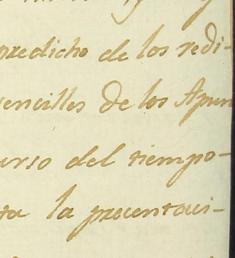 predicho de los redi-
sencillos de los Apun
urso del tiempo-
ta la precentaci-